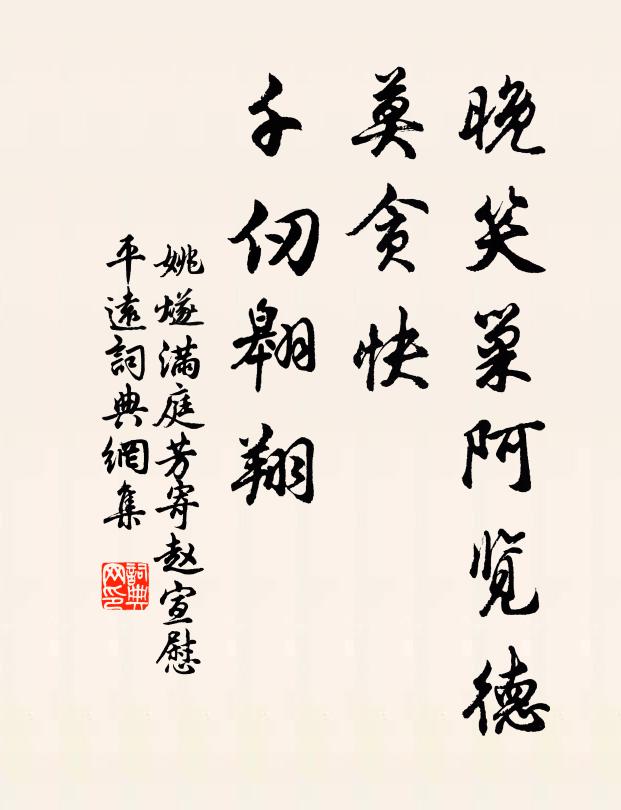 晚笑巢阿览德
莫贪快
千仞翱翔
姚燧满庭芳寄赵宣慰
平遠詞典網集
詞典
网印